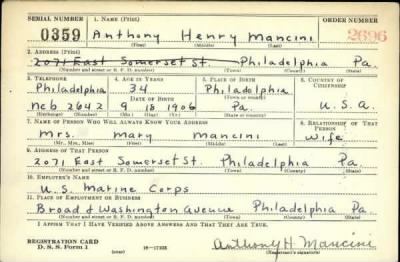 SERIAL NUMBER 1. NAME (Print) ORDER NUMBER
0359 Anthony Henry Mancini 2696
(First) (Middle) (Last)
2. ADDRESS (Print)
2071 East Somerset St. Philadelphia Pa.
(Number and street or R. F. D. number) (Town) (County) (State)
3. TELEPHONE 4. AGE IN YEARS 5. PLACE OF BIRTH 6. COUNTRY OF CITIZENSHIP
Philadelphia 34 Philadelphia
DATE OF BIRTH
Neb 2642 9 18 1906 Pa. U.S.A.
(Exchange) (Number) (Mo.) (Day) (Yr.) (State or country)
7. NAME OF PERSON WHO WILL ALWAYS KNOW YOUR ADDRESS 8. RELATIONSHIP OF THAT PERSON
Mrs. Mary Mancini Wife
(Mr., Mrs., Miss) (First) (Middle) (Last)
9. ADDRESS OF THAT PERSON
2071 East Somerset St. Philadelphia Pa.
(Number and street or R. F. D. number) (Town) (County) (State)
10. EMPLOYER'S NAME
U.S. Marine Corps
11. PLACE OF EMPLOYMENT OR BUSINESS
Broad & Washington Avenue Philadelphia Pa.
(Number and street or R. F. D. number) (Town) (County) (State)
I AFFIRM THAT I HAVE VERIFIED ABOVE ANSWERS AND THAT THEY ARE TRUE.
REGISTRATION CARD
D. S. S. Form 1 16-17105 Anthony H. Mancini
(Registrant's signature)